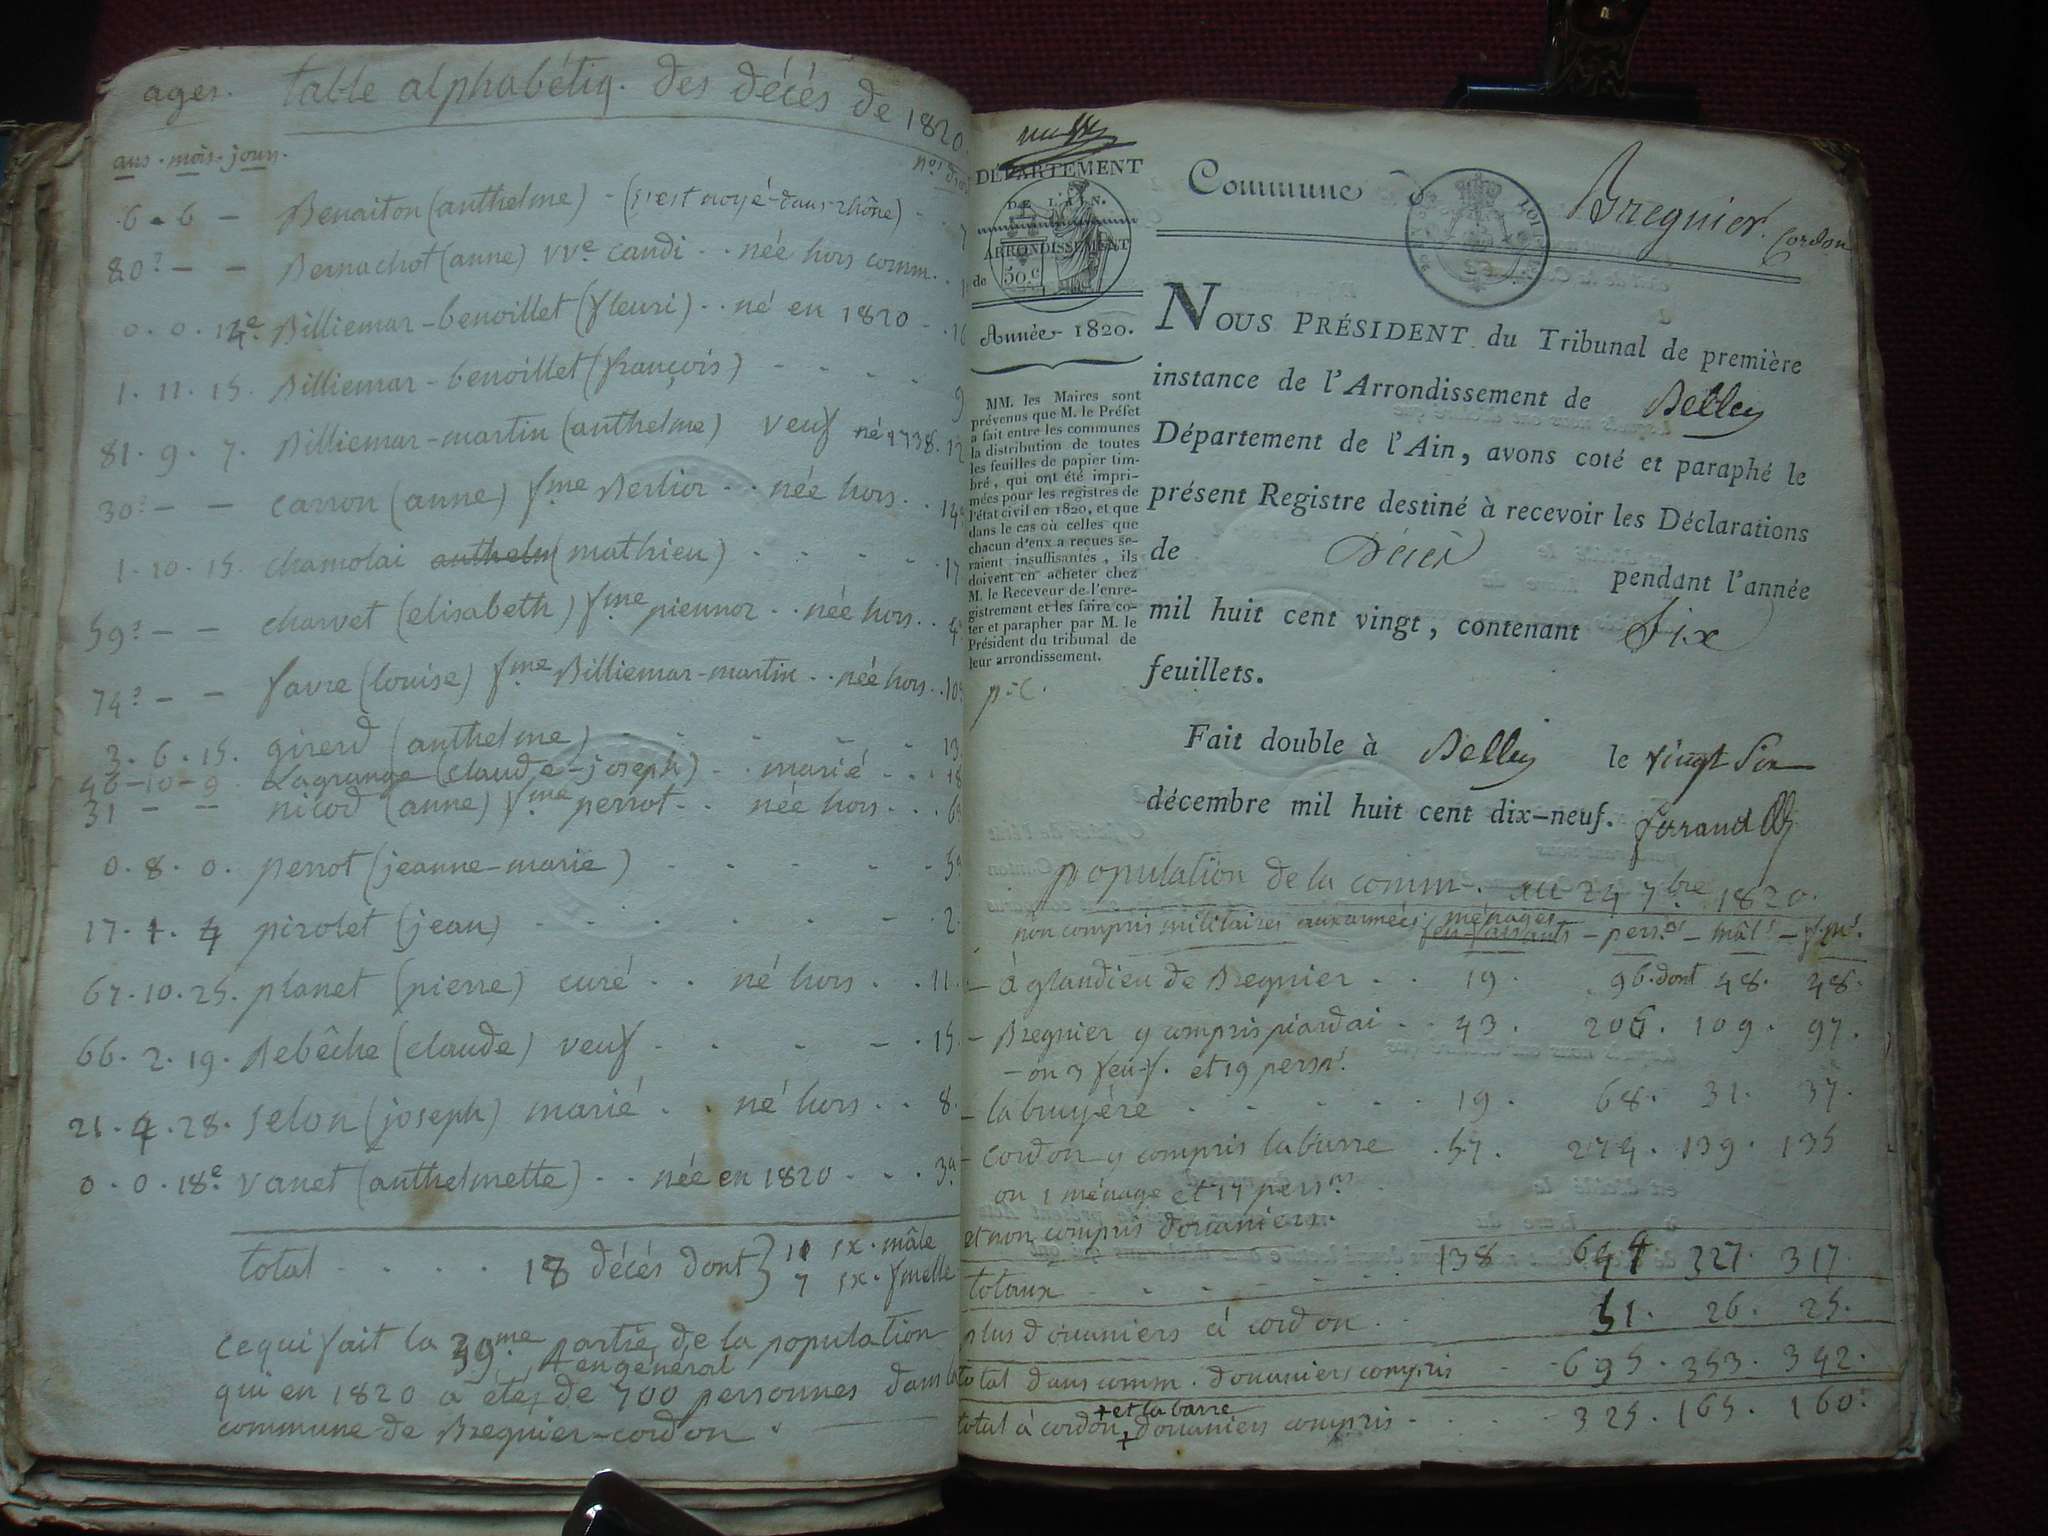 ages. table alphabétiq. des décés de 1820.
ans. mois. jours.
6 - 6 - Benaiton (anthelme) - (s'est noyé dans rhône) - 7
80? - - Bernachot (anne) vve candi .. née hors comm.
0. 0. 14e Billiemar-benoillet (fleuri) .. né en 1820 .. 16
1. 11. 15. Billiemar-benoillet (françois) - - - - 9
81. 9. 7. Billiemar-martin (anthelme) veuf né 1738. 12
30? - - carron (anne) fme Berlior .. née hors .. 14
1. 10. 15. chamolai anthelm (mathieu) . . . . 17
59? - - charvet (elisabeth) fme piennoz .. née hors .. 4
74? - - favre (louise) fme Billiemar-martin .. née hors .. 10
3. 6. 15. girerd (anthelme) - - - - - 13
46-10-9. Lagrange (claude-joseph) .. marié ... 18
31 - - nicod (anne) fme perrot .. née hors ... 6
0. 8. 0. perrot (jeanne-marie) - - - - - 5
17. 1. 4 pirolet (jean) - - - - - - 2.
67. 10. 25. planet (pierre) curé .. né hors .. 11.
66. 2. 19. Rebêche (claude) veuf - - - - . 15.
21. 4. 28. selon (joseph) marié .. né hors .. 8.
0. 0. 18e vanet (anthelmette) .. née en 1820 ... 3
total . . . . . 18 décés dont } 11 sx. mâle
7 sx. fmelle
ce qui fait la 39me partie de la population
en général
qui en 1820 a été de 700 personnes dans la
commune de Bregnier-cordon.
DÉPARTEMENT
DE L'AIN.
ARRONDISSEMENT
de
50 c
Année 1820.
MM. les Maires sont
prévenus que M. le Préfet
a fait entre les communes
la distribution de toutes
les feuilles de papier tim-
bré, qui ont été impri-
mées pour les registres de
l'état civil en 1820, et que
dans le cas où celles que
chacun d'eux a reçues se-
raient insuffisantes, ils
doivent en acheter chez
M. le Receveur de l'enre-
gistrement et les faire co-
ter et parapher par M. le
Président du tribunal de
leur arrondissement.
Commune d Bregnier Cordon
NOUS PRÉSIDENT du Tribunal de première
instance de l'Arrondissement de Belley
Département de l'Ain, avons coté et paraphé le
présent Registre destiné à recevoir les Déclarations
de Décès pendant l'année
mil huit cent vingt, contenant Six
feuillets.
Fait double à Belley le vingt Six
décembre mil huit cent dix-neuf.
population de la comm. au 24 7bre 1820.
non compris militaires aux armées. ménages
feu-faisants - persnes - mâls - fmes.
- à glandieu de Bregnier .. 19. 96. dont 48. 48.
- Bregnier y compris piardai .. 43. 206. 109. 97.
- ou 3 feu-f. et 19 persn.
- la bruyère . . . . . . 19. 68. 31. 37.
- Cordon y compris la barre . 57. 274. 139. 135
ou 1 ménage et 17 persnes
et non compris douaniers.
totaux . . . . . 138 644 327. 317.
plus douaniers à cordon . . 51. 26. 25.
total dans comm. douaniers compris - - 695. 353. 342.
+ et la barre
total à cordon + douaniers compris - . . . 325. 165. 160.